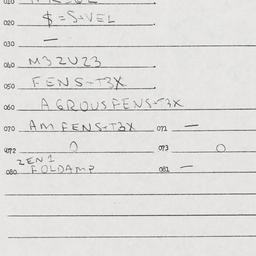 010
020 $=S-VEL
030 —
040 M32U23
050 FENS-T3X
060 AGROUSFENS-T3X
070 AMFENS-T3X 071 —
072 0 073 0
2EN1
080 FOLDAMP 081 —